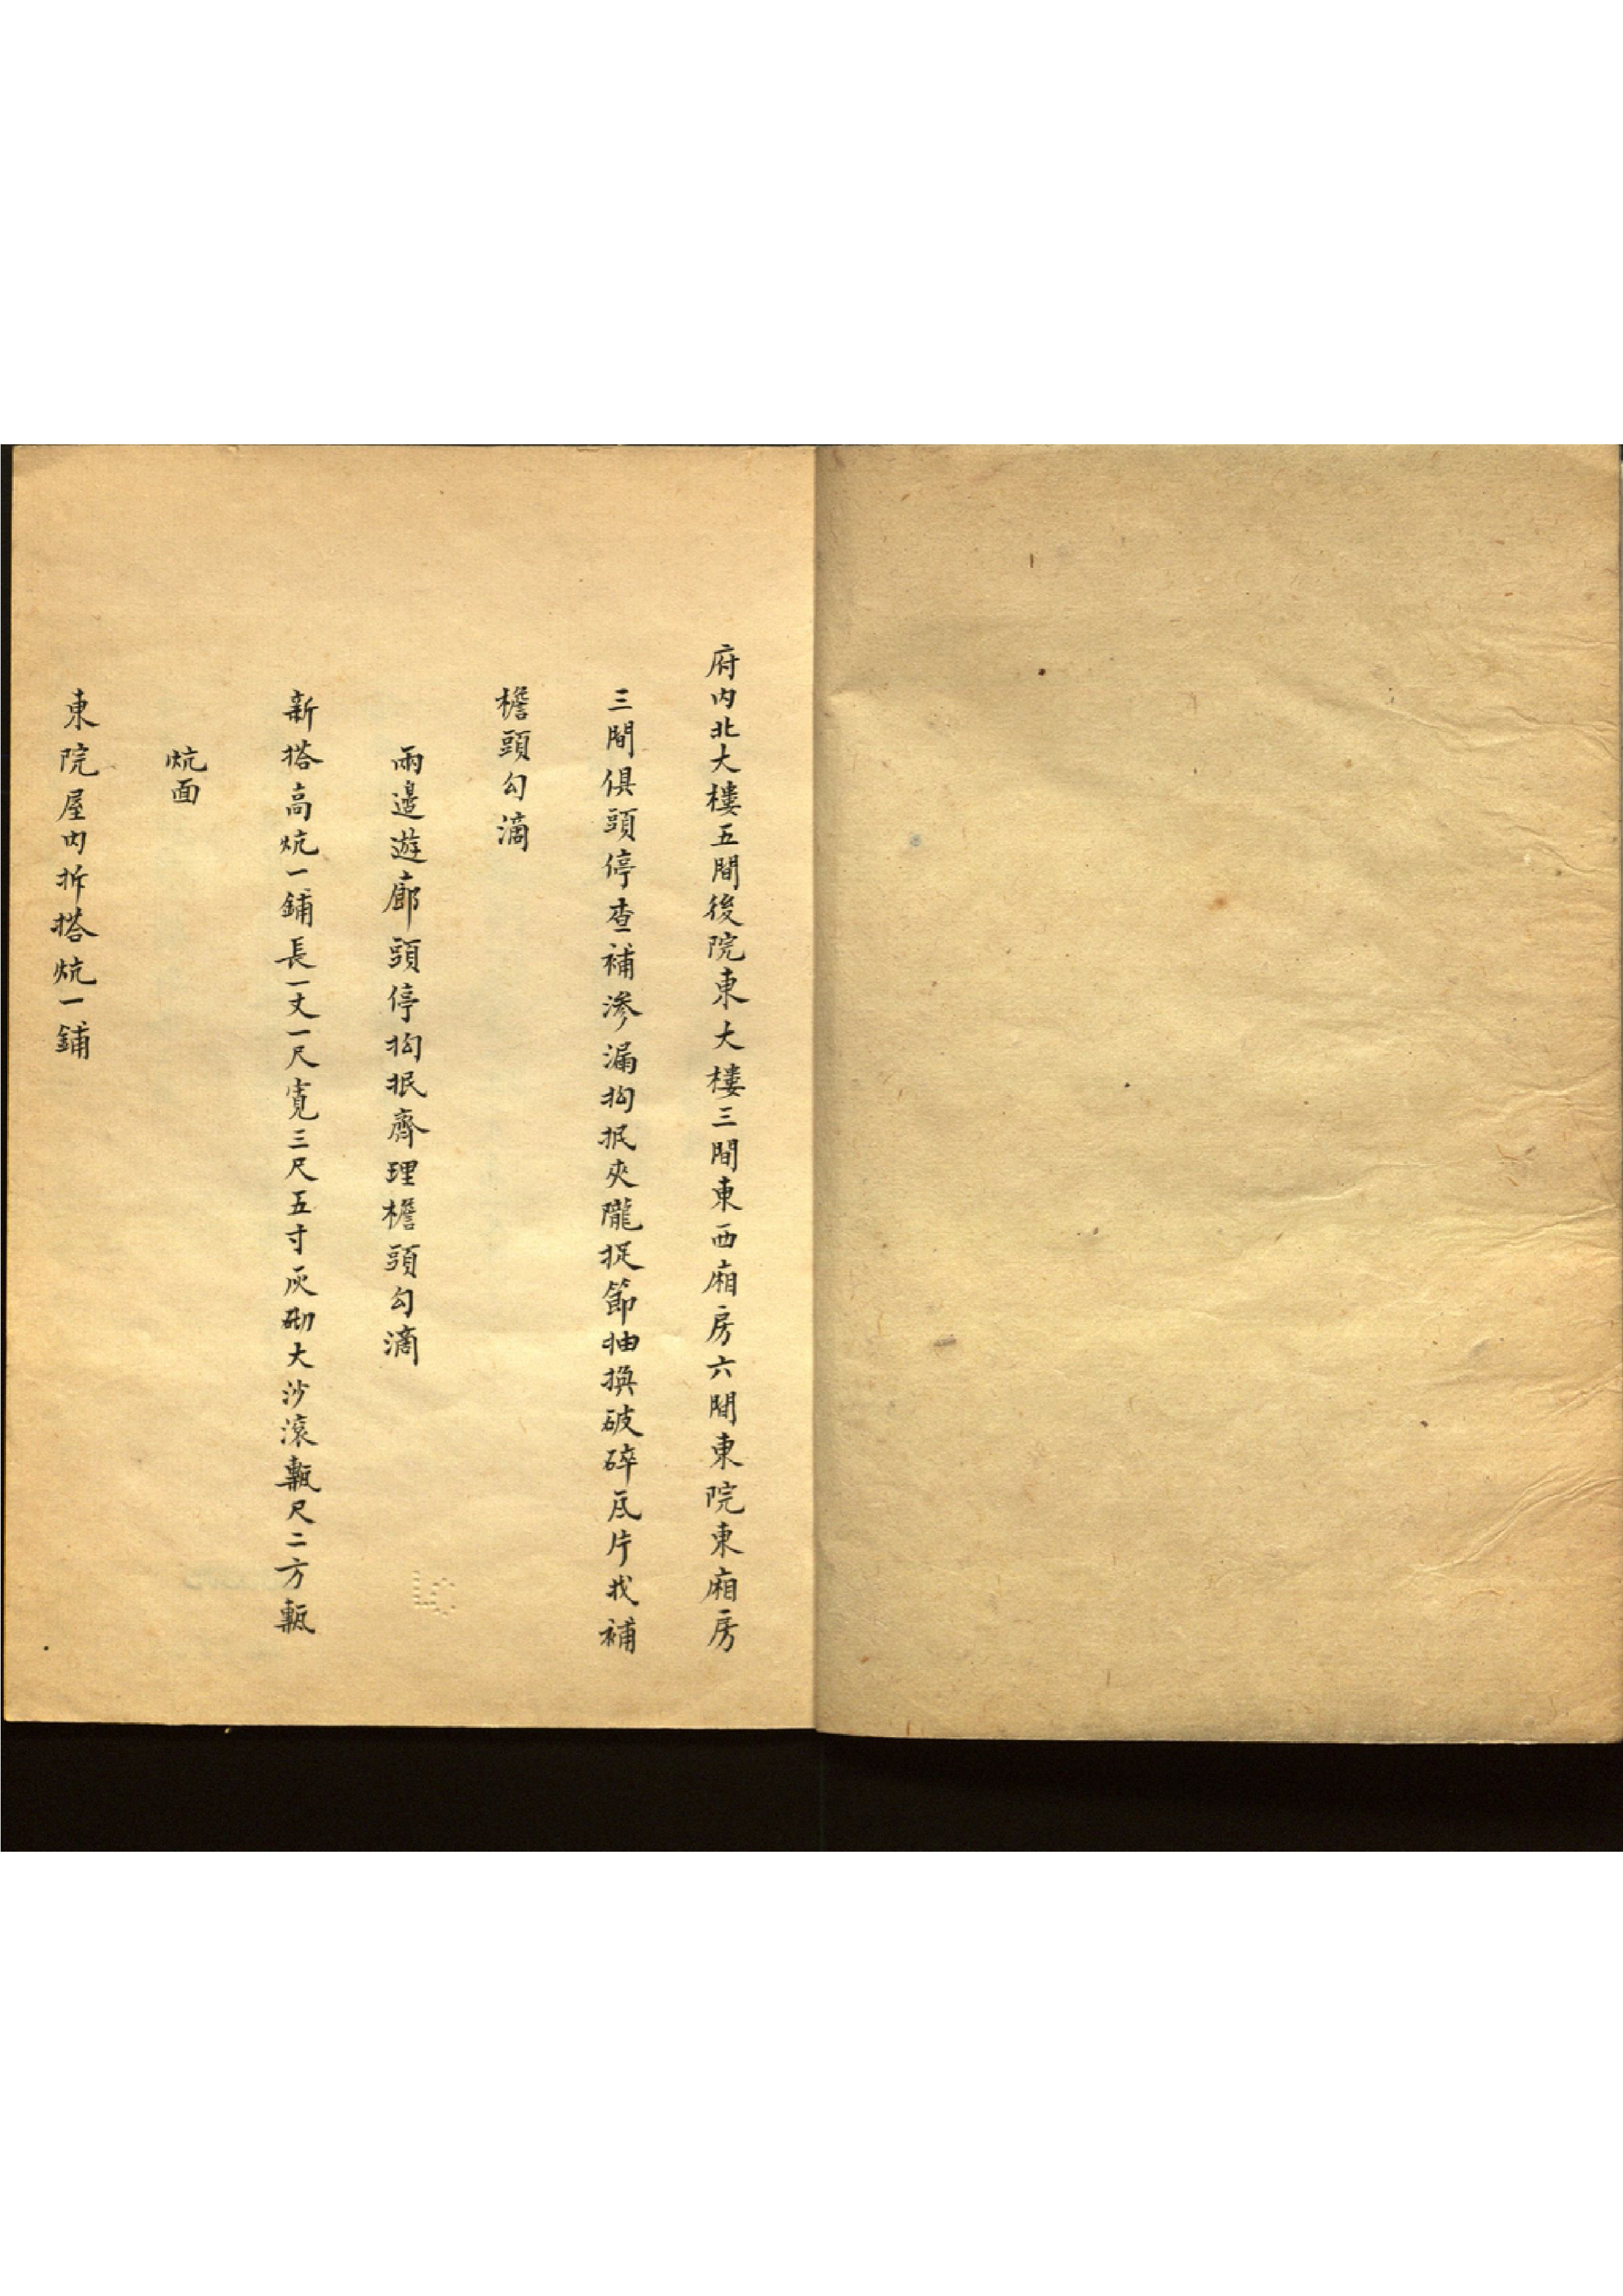 府内北大樓五間後院東大樓三間東西廂房六間東院東廂房
三間俱頭停查補滲漏抅抿夾隴捉節抽換破碎瓦片找補
檐頭勾滴
兩邊遊廊頭停抅抿齊理檐頭勾滴
新搭高炕一鋪長一丈一尺寬三尺五寸灰砌大沙滾甎尺二方甎
炕面
東院屋内拆搭炕一鋪